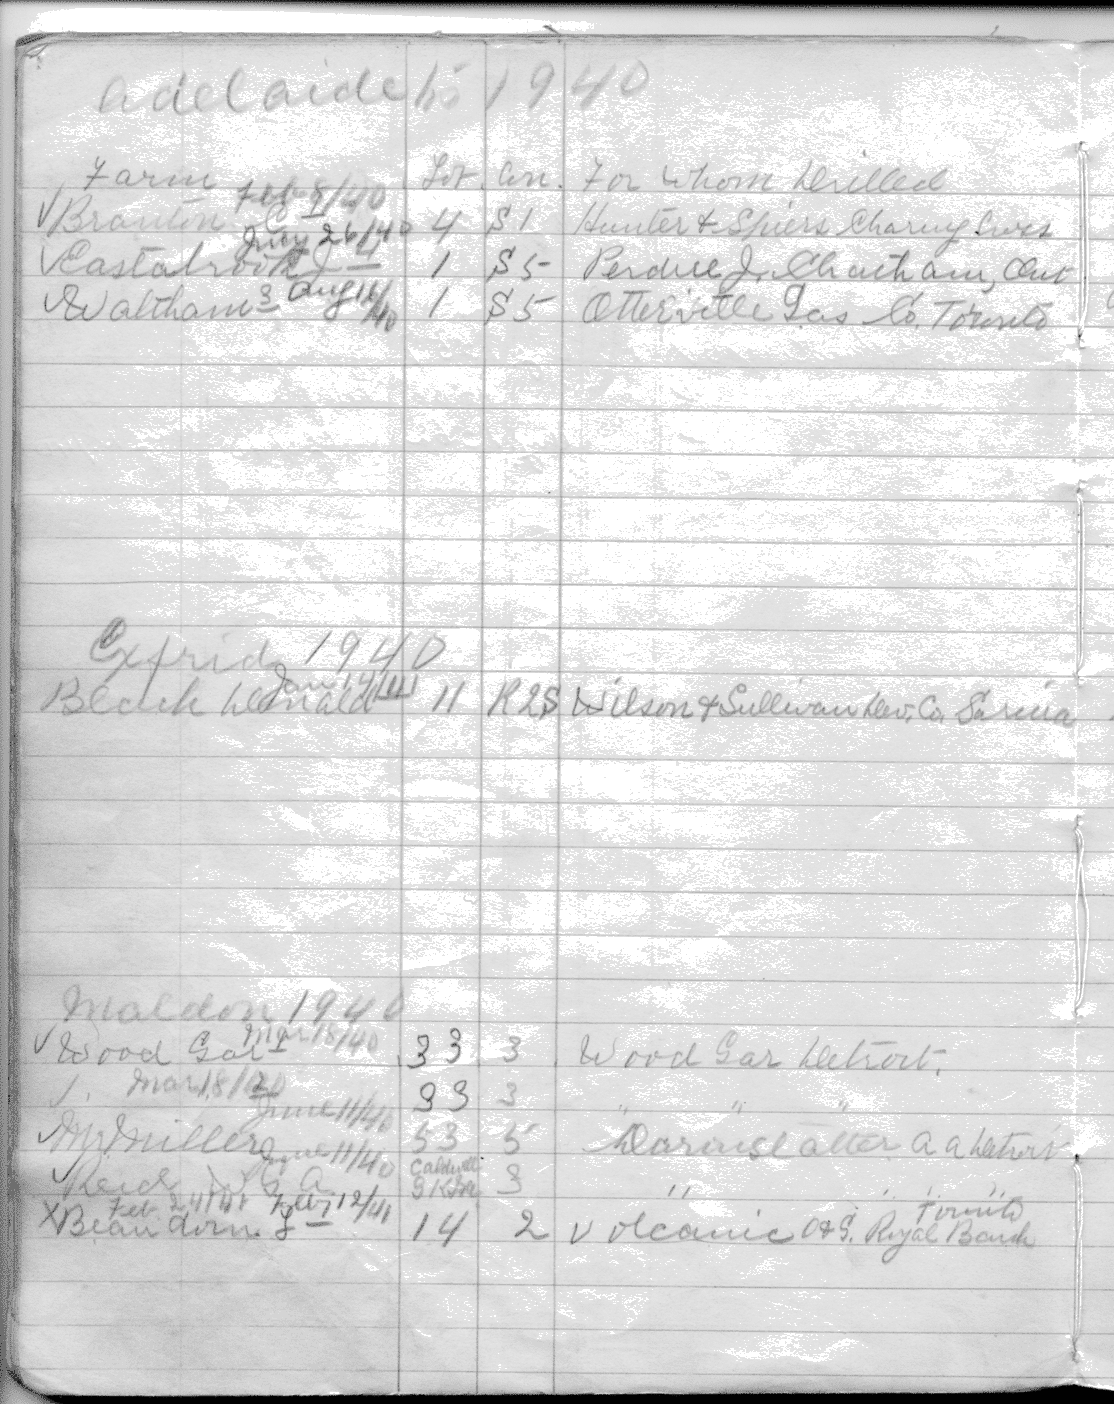 Adelaide 1940
Farm Lot Con. For Whom Drilled
Feb 9/40
✓ Branton 4 S 1 Hunter & Spiers Charing Cross
July 26/40
✓ Eastabrook J 4 1 S 5 Perdue J. Chatham, Ont
✓ Waltham 3 Aug 16/40 1 S 5 Otterville Gas Co. Toronto
Exfrid 1940
Jan 14/41
Black Donald 11 R2S Wilson & Sullivan Dev. Co. Sarnia
Maldon 1940
Mar 18/40
✓ Wood Gar 1 33 3 Wood Gar Detroit.
✓ Mar 18/40 33 3 " " "
June 11/40
Miller 53 5 A A Detroit
June 11/40 Caldwell
Reid G A 3 " " " "
Feb 24/41 12/41 Toronto
X Beaudoin J 14 2 Volcanic O & G. Royal Bank